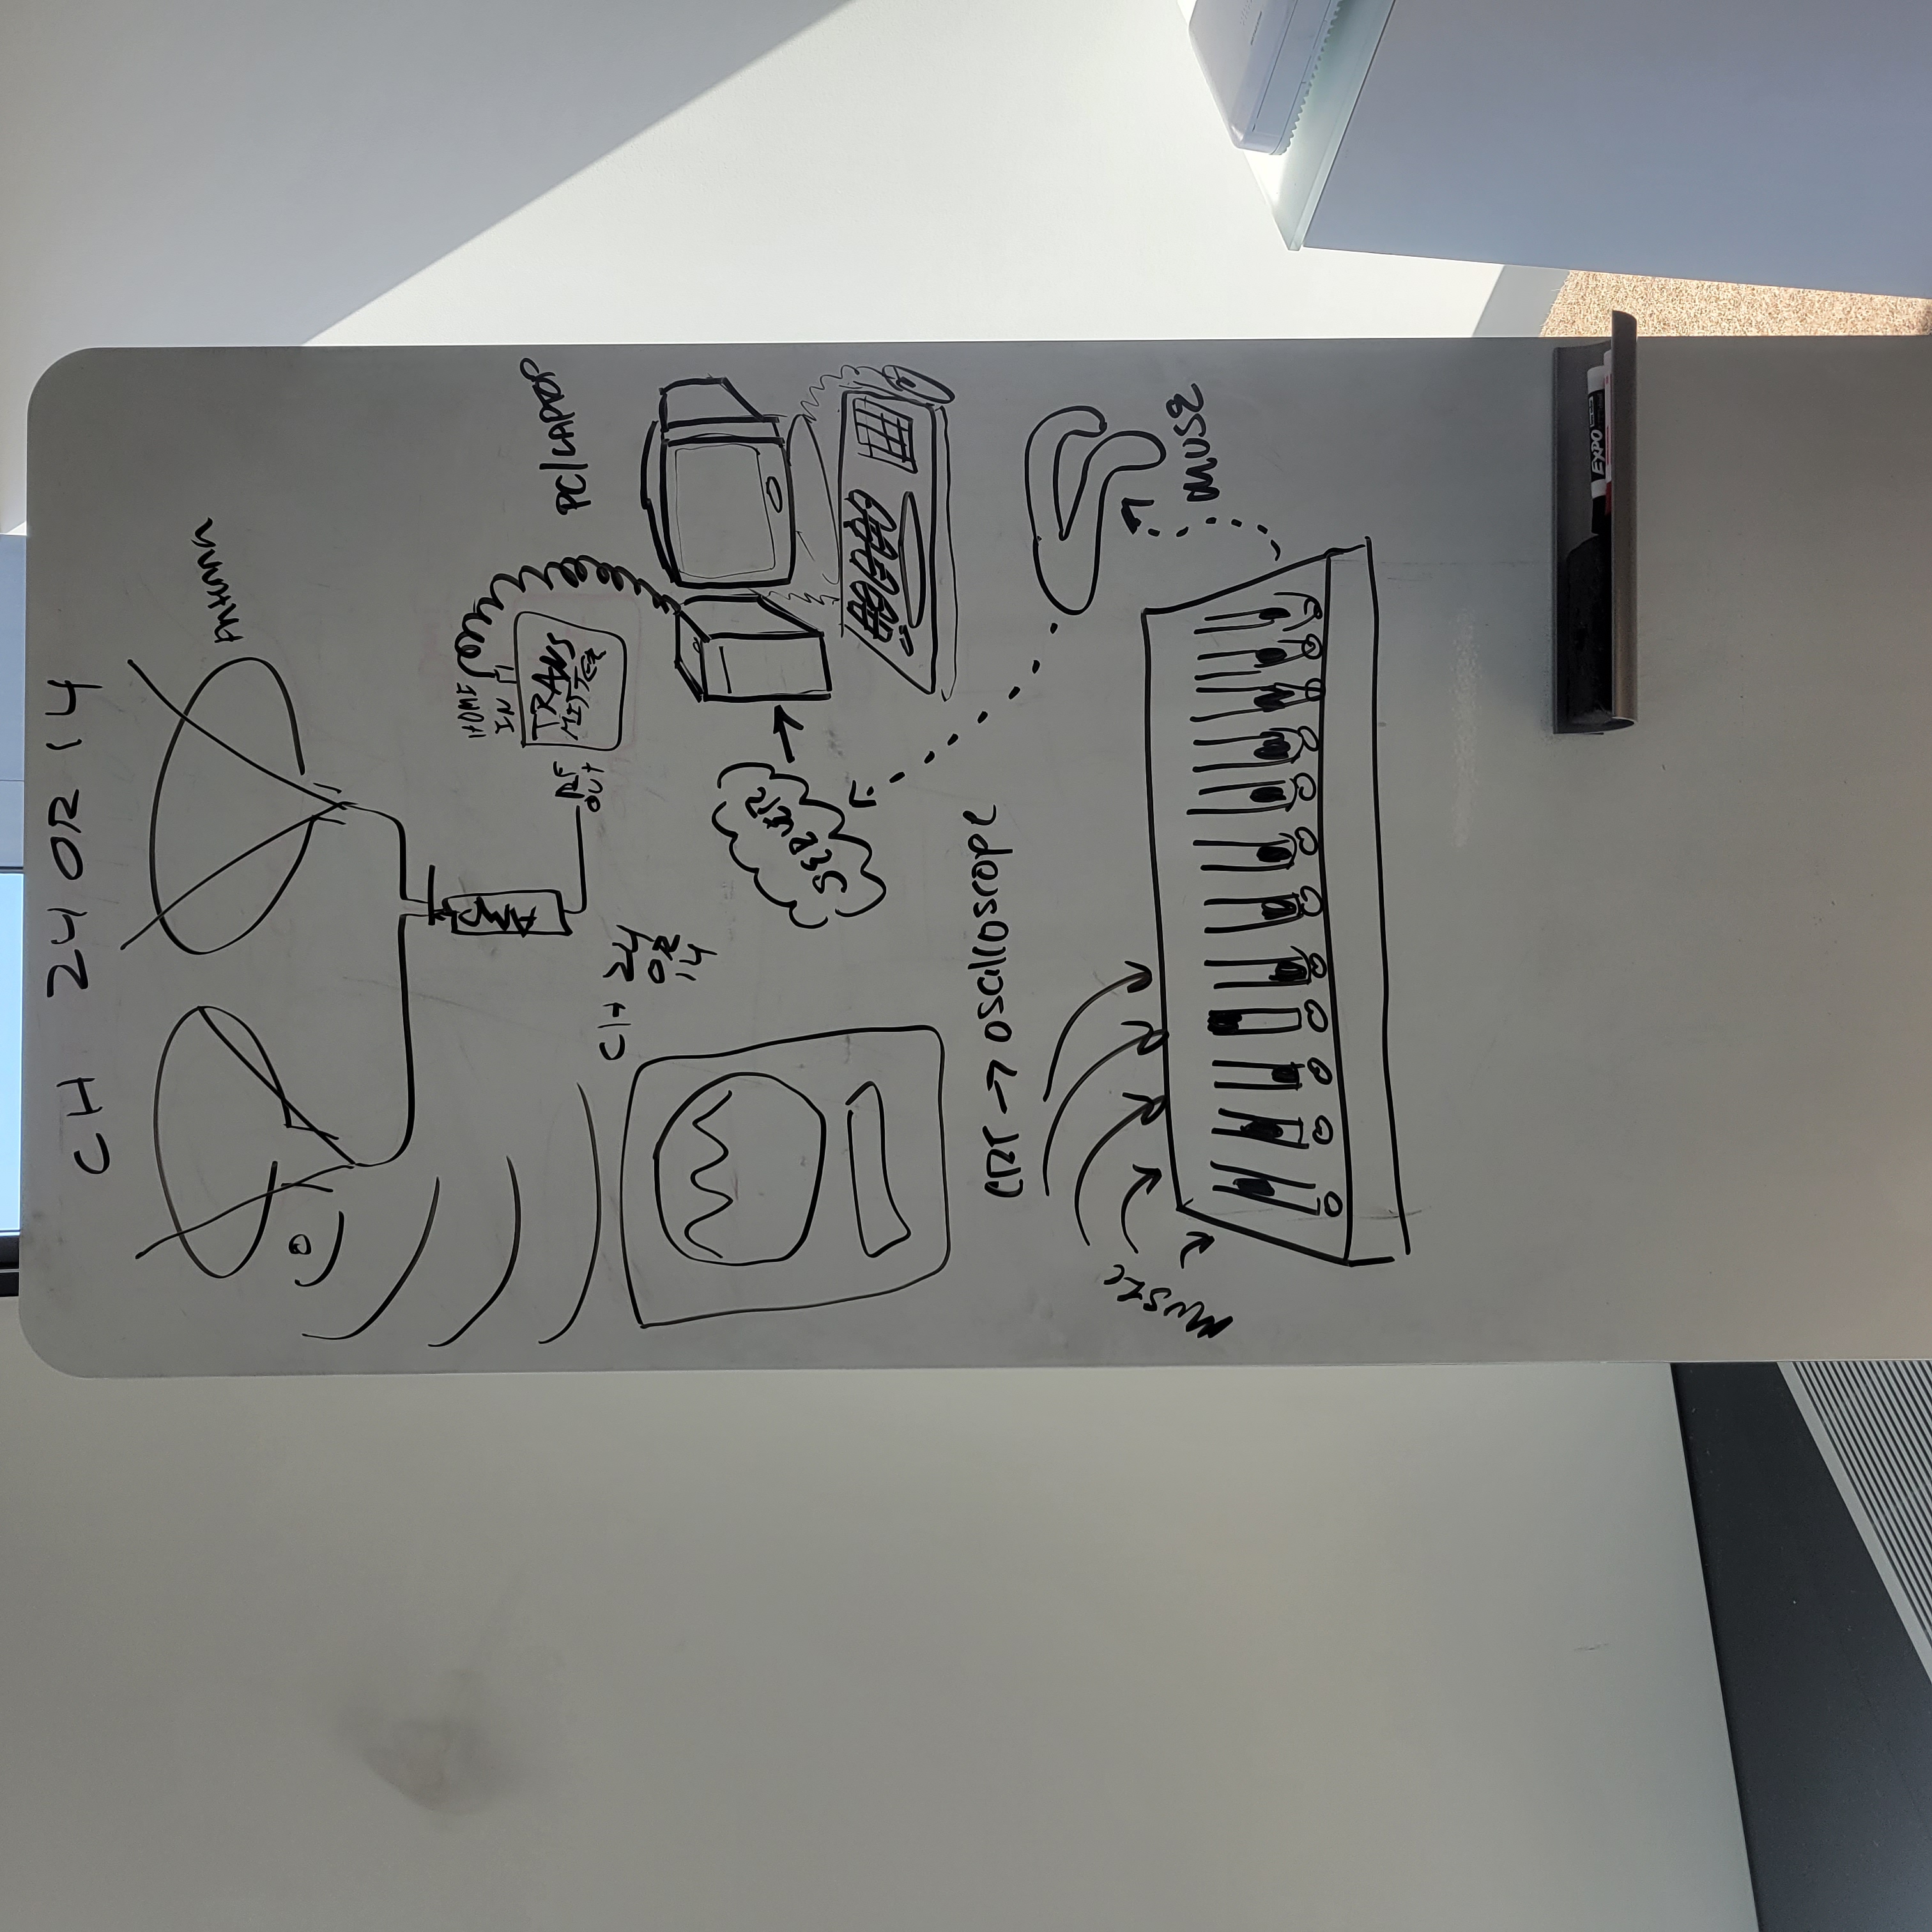 CH 24 OR 14
Antenna
AMP
HOME
IN
TRANS
MISTER
RF
OUT
PC/LAPTOP
CH 24
OR
14
SERVER
CRT → oscilloscope
MUSIC
MUSE
EXPO